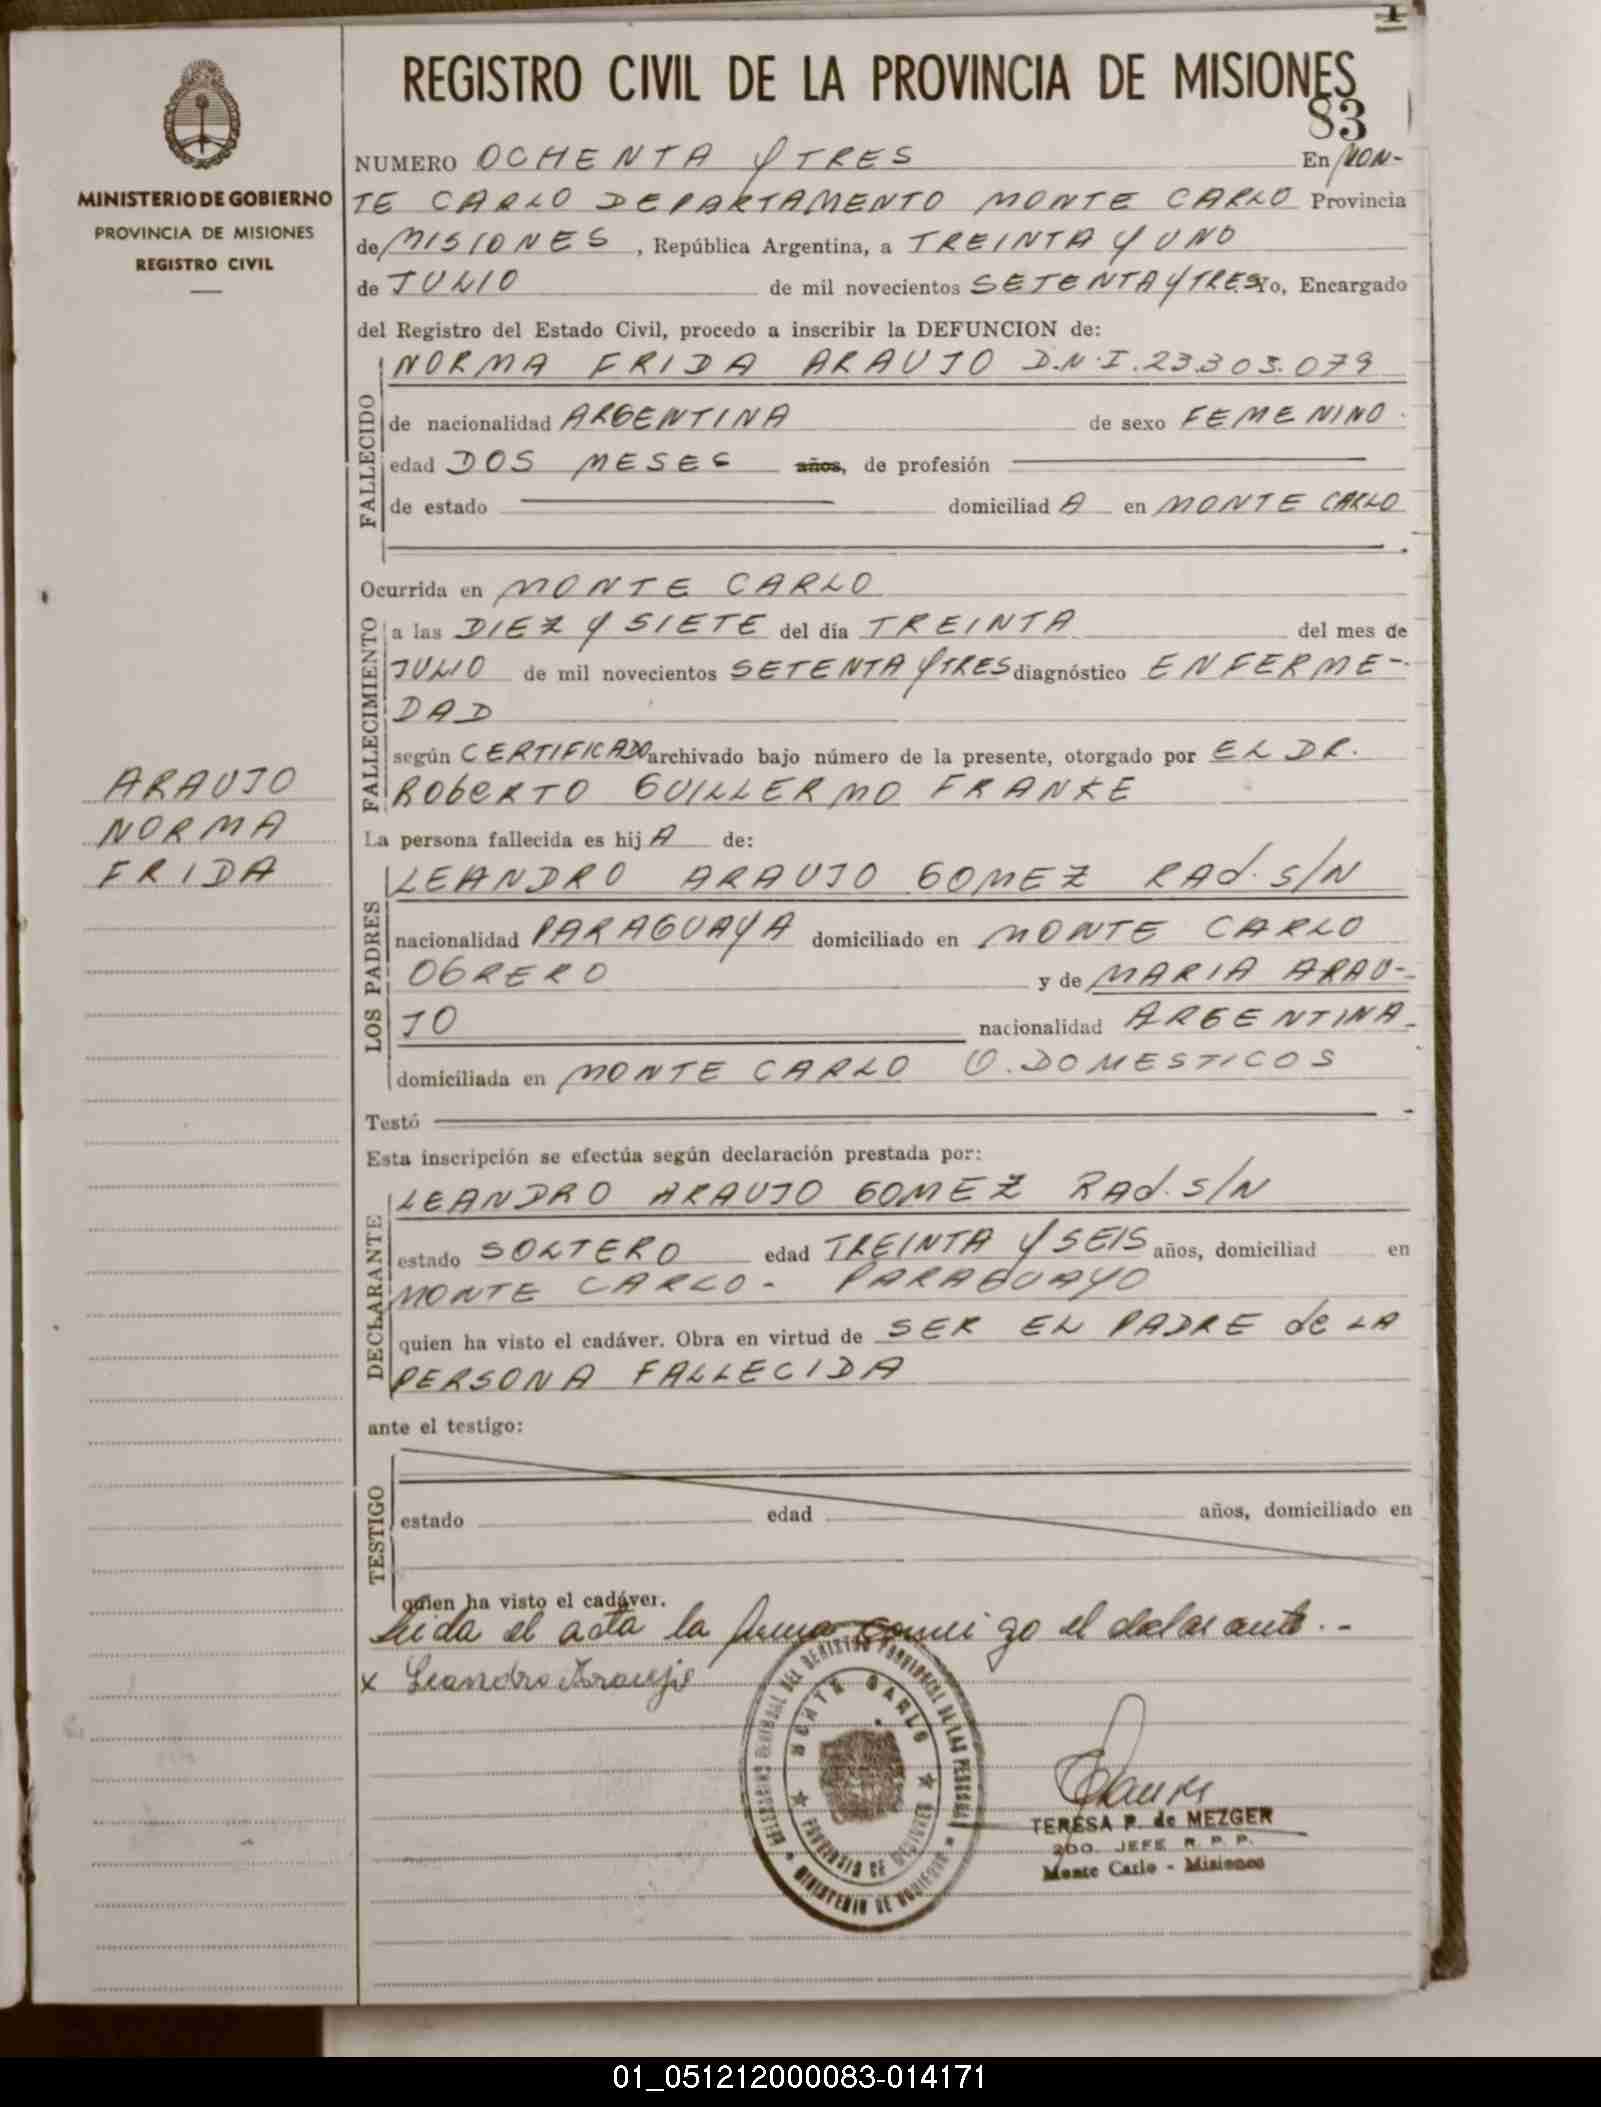 REGISTRO CIVIL DE LA PROVINCIA DE MISIONES
83
MINISTERIO DE GOBIERNO
PROVINCIA DE MISIONES
REGISTRO CIVIL
NUMERO OCHENTA Y TRES En MON-
TE CARLO DEPARTAMENTO MONTE CARLO Provincia
de MISIONES, República Argentina, a TREINTA Y UNO
de JULIO de mil novecientos SETENTA Y TRES Yo, Encargado
del Registro del Estado Civil, procedo a inscribir la DEFUNCION de:
FALLECIDO
NORMA FRIDA ARAUJO D.N.I. 23.303.079
de nacionalidad ARGENTINA de sexo FEMENINO.
edad DOS MESES años, de profesión
de estado domiciliad A en MONTE CARLO
Ocurrida en MONTE CARLO
FALLECIMIENTO
a las DIEZ Y SIETE del día TREINTA del mes de
JULIO de mil novecientos SETENTA Y TRES diagnóstico ENFERME-
DAD
según CERTIFICADO archivado bajo número de la presente, otorgado por EL DR.
RObeRTO GUILLERMO FRANKE
ARAUJO
NORMA
FRIDA
La persona fallecida es hij A de:
LOS PADRES
LEANDRO ARAUJO GOMEZ RAd. S/N
nacionalidad PARAGUAYA domiciliado en MONTE CARLO
OBRERO y de MARIA ARAU-
JO nacionalidad ARGENTINA
domiciliada en MONTE CARLO Q. DOMESTICOS
Testó
Esta inscripción se efectúa según declaración prestada por:
DECLARANTE
LEANDRO ARAUJO GOMEZ RAd. S/N
estado SOLTERO edad TREINTA Y SEIS años, domiciliad en
MONTE CARLO - PARAGUAYO
quien ha visto el cadáver. Obra en virtud de SER EL PADRE de LA
PERSONA FALLECIDA
ante el testigo:
TESTIGO
estado edad años, domiciliado en
quien ha visto el cadáver.
Leida el acta la firma conmigo el declarante.-
x Leandro Araujo
MONTE CARLO
PROVINCIA DE MISIONES
MINISTERIO DE GOBIERNO
TERESA P. de MEZGER
2DO. JEFE R. P. P.
Monte Carlo - Misiones
01_051212000083-014171